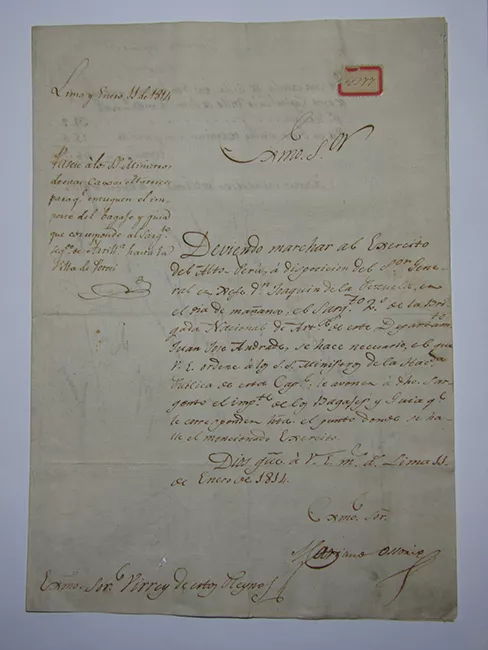 Lima y Enero 11 de 1814
Exmo. S.or
Pasen à los SS. Ministros
de estas Caxas
para q.e entreguen el im-
porte del bagaje y guia
que corresponde al Sarg.to
seg.do de Artill.a hasta la
Villa de
Deviendo marchar al Exercito
del Alto Perú, à disposicion del S.or Gene-
ral en Xefe D.n Joaquin de la Pezuela, en
el dia de mañana, el Sarg.to 2.o de la Bri-
gada Nacional de Art.a de este Departam.to
Juan José Andrade, se hace necesario, el que
V. E. ordene à los S.S. Ministros de la Haz.da
Publica de esta Cap.l, le avonen à dho. Sar-
gento el imp.te de los Bagages y Guia q.e
le corresponden h.ta el punto donde se ha-
lle el mencionado Exercito.
Dios gũe. à V. E. m.s a.s Lima 11
de Enero de 1814.
Exmo. Sor.
Mariano Osorio
Exmo. Sor. Virrey de estos Reynos